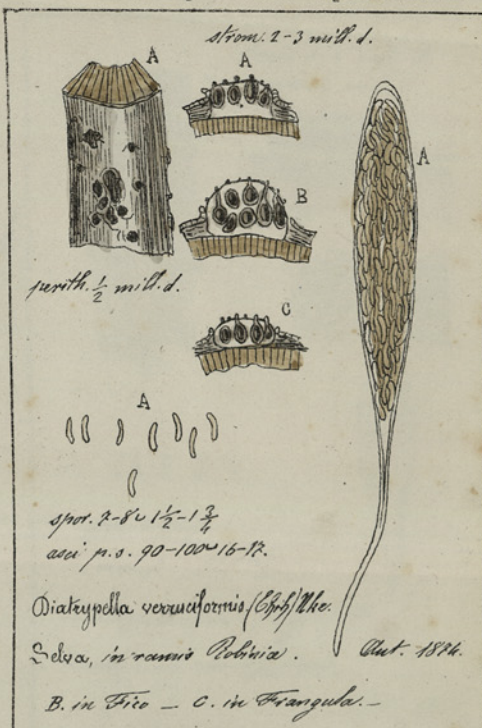 strom. 2-3 mill. d.
A
A
A
B
perith. 1/2 mill. d.
C
A
spor. 7-8 ~ 1 1/2 - 1 3/4
asci p. s. 90-100 ~ 16-17.
Diatrypella verruciformis (Ehrh) Nke.
Selva, in ramis Robiniæ. Aut. 1874.
B. in Fico — C. in Frangula. —